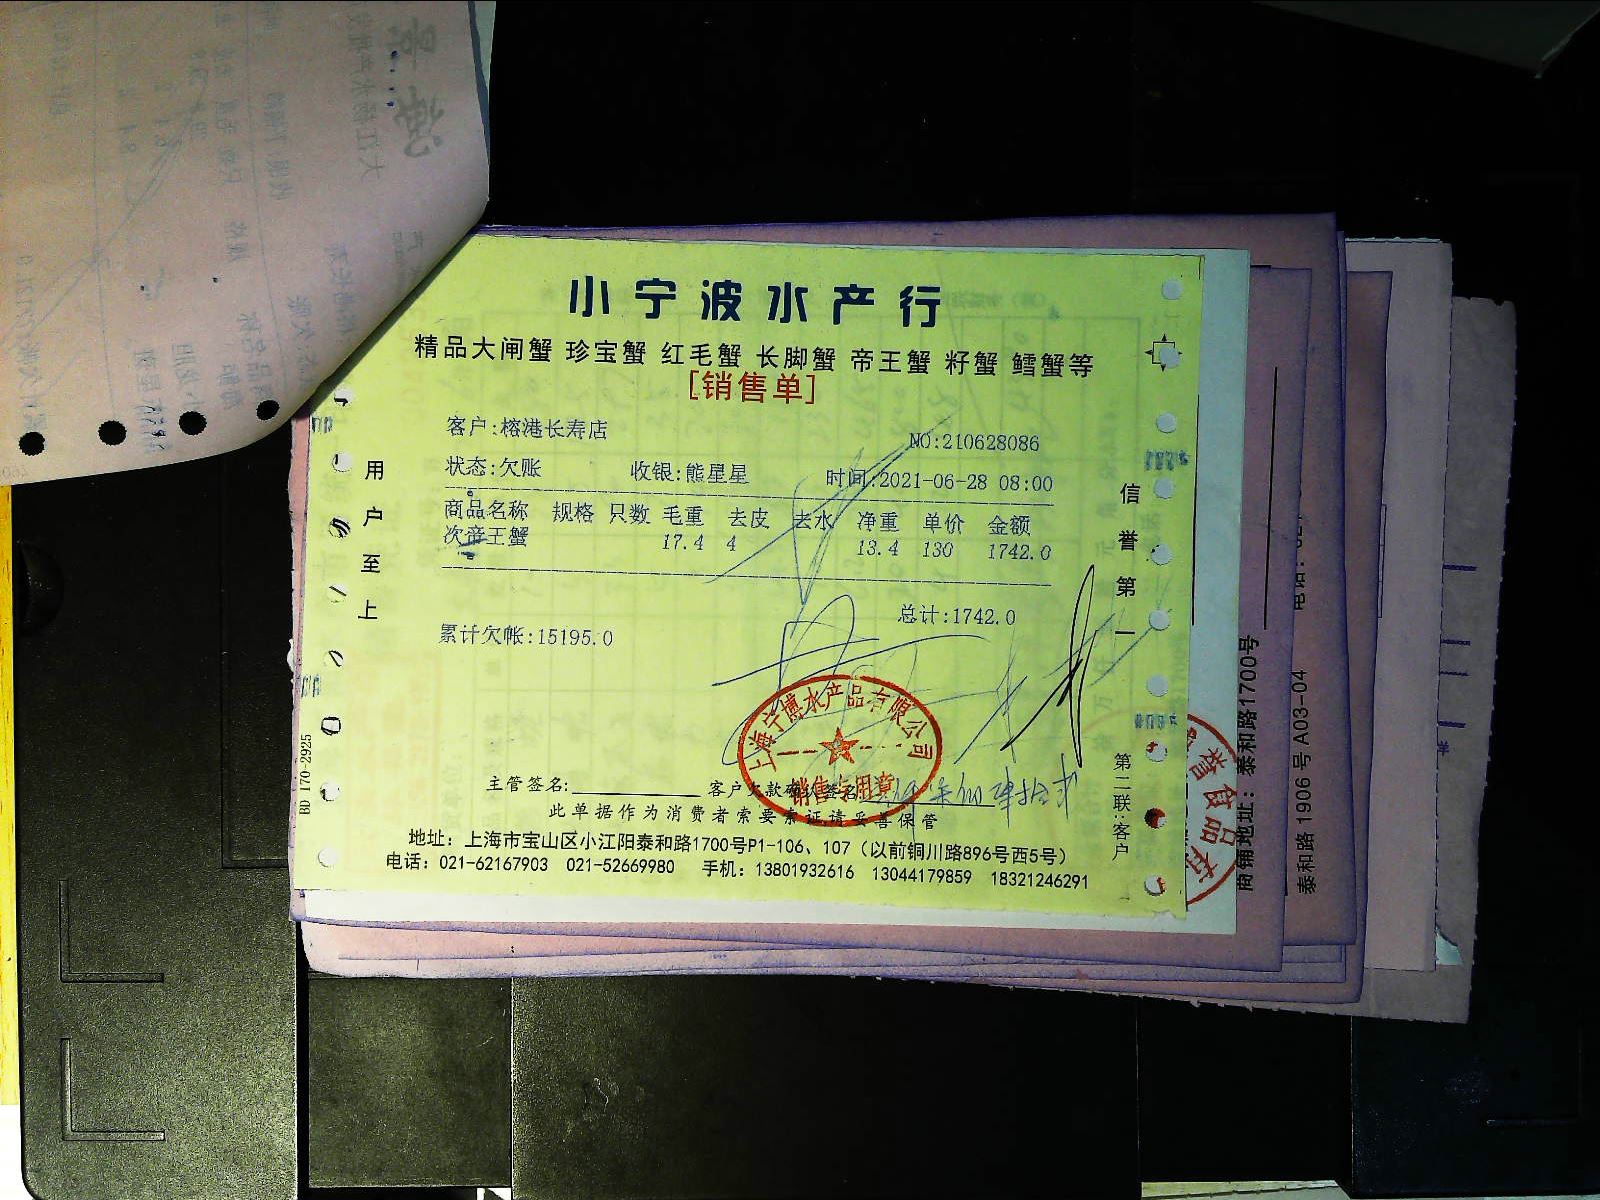 小宁波水产行
精品大闸蟹 珍宝蟹 红毛蟹 长脚蟹 帝王蟹 籽蟹 鳕蟹等
[销售单]
客户:榕港长寿店
NO:210628086
状态:欠账 收银:熊星星 时间:2021-06-28 08:00
商品名称 规格 只数 毛重 去皮 去水 净重 单价 金额
次帝王蟹 17.4 4 13.4 130 1742.0
总计:1742.0
累计欠帐:15195.0
上海宁博水产品有限公司
销售专用章
主管签名: 客户欠款确认签名:
此单据作为消费者索要索证,请妥善保管
地址：上海市宝山区小江阳泰和路1700号P1-106、107（以前铜川路896号西5号）
电话：021-62167903 021-52669980 手机：13801932616 13044179859 18321246291
用户至上
信誉第一
第二联:客户
BD 170-2925
商铺地址：泰和路1700号
泰和路 1906 号 A03-04